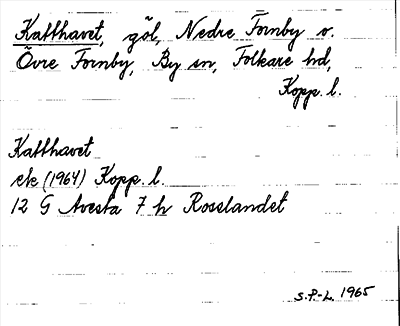 Katthavet, göl, Nedre Fornby o.
Övre Fornby, By sn, Folkare hd,
Kopp. l.
Katthavet
ek (1964) Kopp. l.
12 G Avesta 7 h Rosslandet
S.P-L. 1965